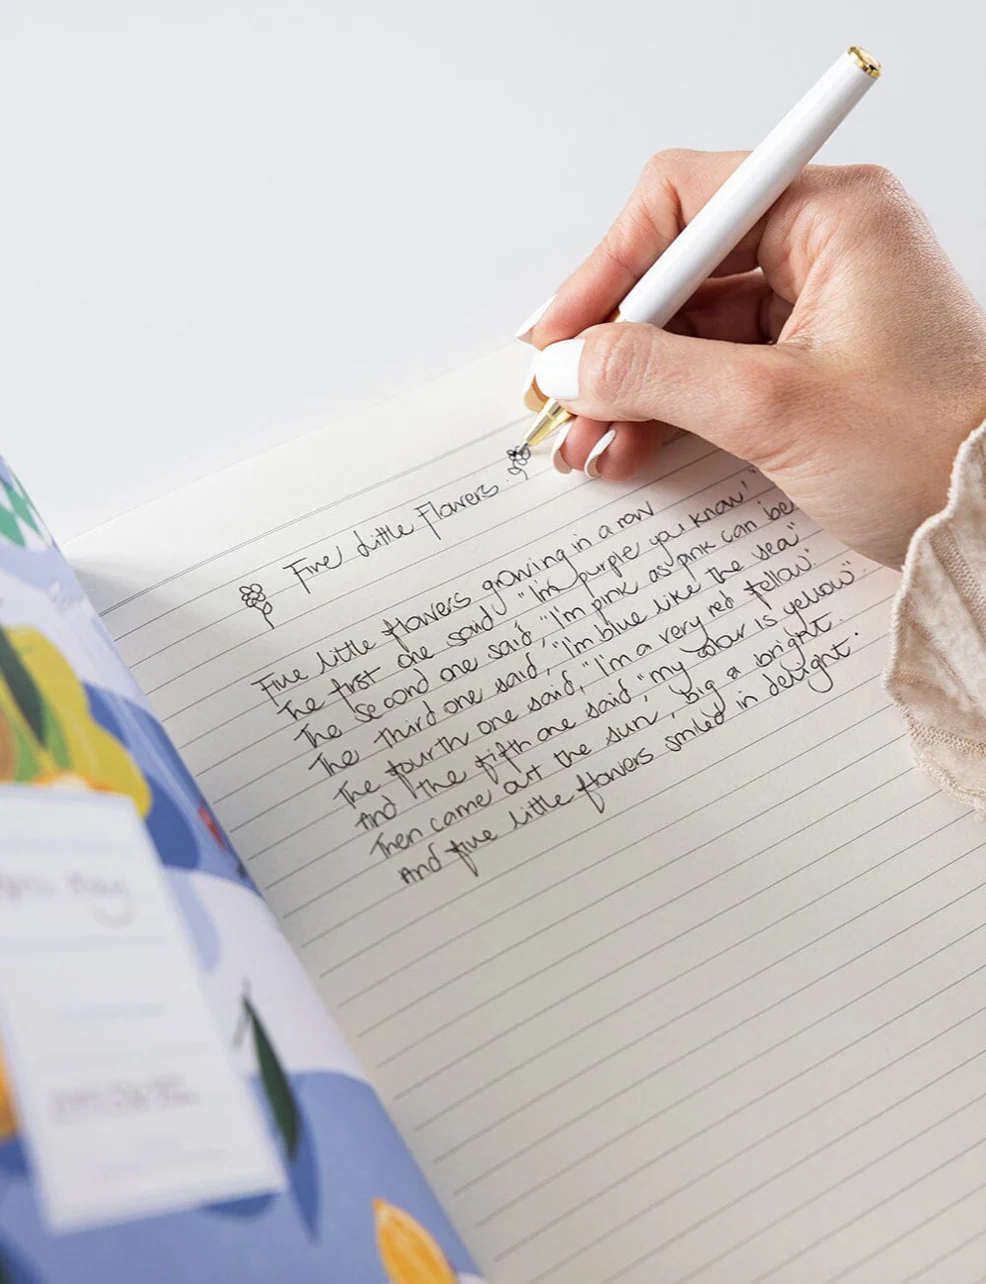 Five Little Flowers.
Five little flowers growing in a row
The first one said, "I'm purple you know"
The second one said, "I'm pink as pink can be
The third one said, "I'm blue like the sea"
The fourth one said, "I'm a very red fellow"
And the fifth one said, "my color is yellow".
Then came out the sun, big a bright.
And five little flowers smiled in delight.
May